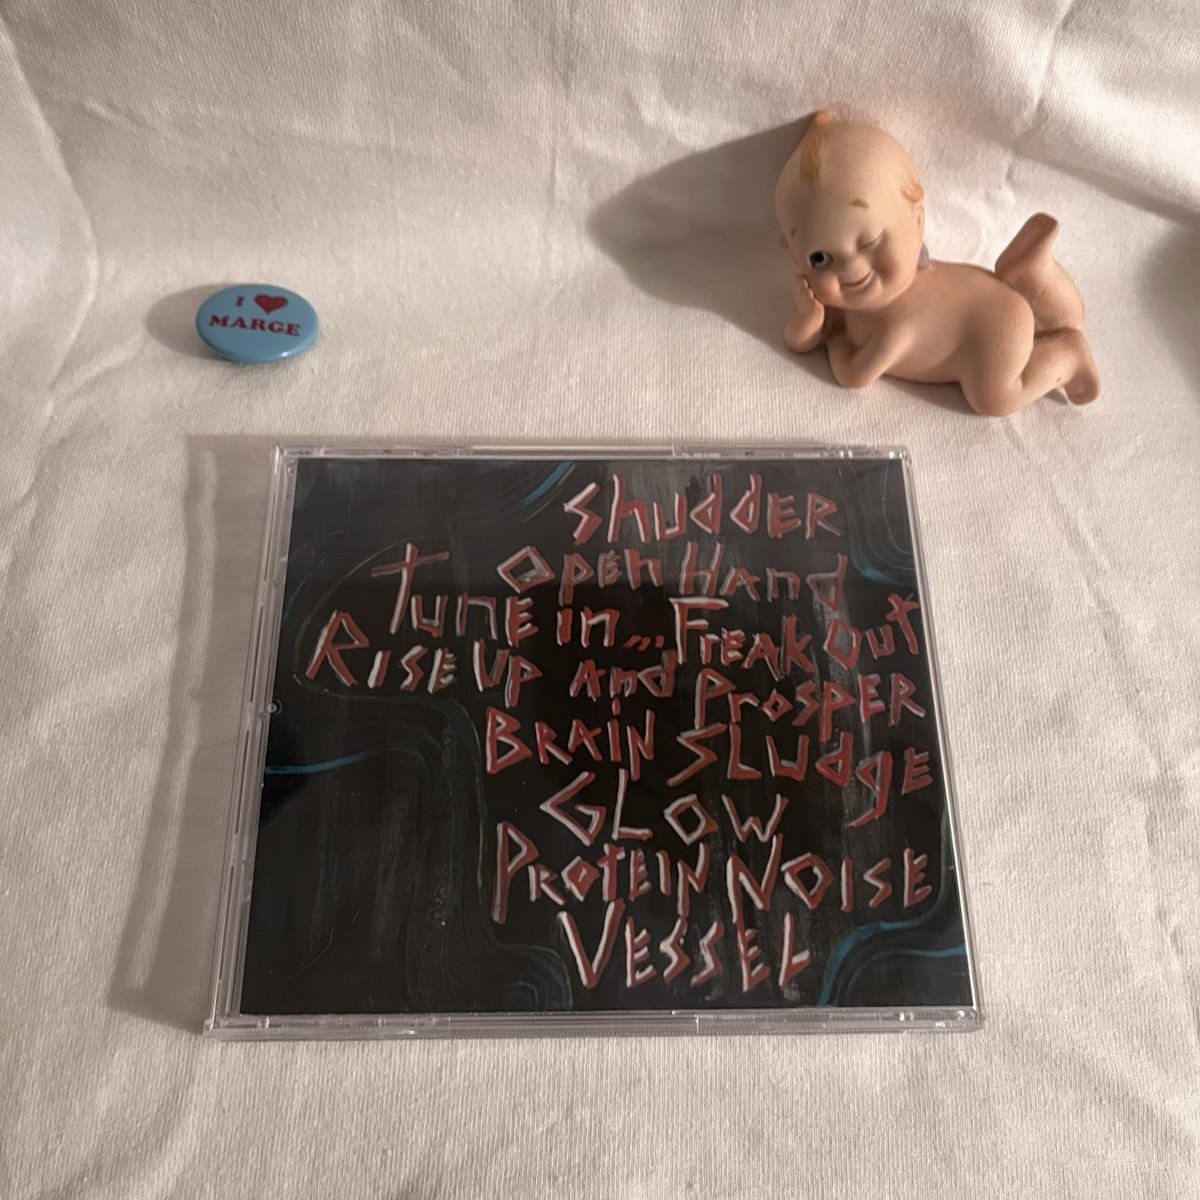 I ♥
MARGE
ShuddER
OpEn Hand
TunE in... FrEAk Out
RisE Up and ProspER
BRAin SLudgE
GLOW
ProtEin NOISE
VESSEL